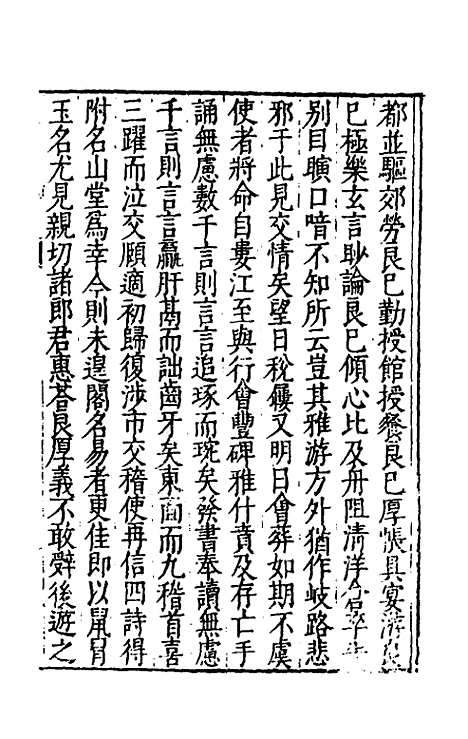 都並驅郊勞良巳勤授館授餐良巳厚悵具宴游良
巳極樂玄言眇論良巳傾心比及舟阻淸洋
別目曠口喑不知所云豈其雅游方外猶作岐路悲
邪于此見交情矣望日稅鞿又明日會葬如期不虞
使者將命自婁江至與行會豐碑雅什賁及存亡手
誦無慮數千言則言言追琢而琬矣發書奉讀無慮
千言則言言羸肝鬲而詘齒牙矣東面而九稽首喜
三躍而泣交頤適初歸復涉市交稽使再信四詩得
附名山堂爲幸今則未遑閣名易者更佳即以鼠肎
玉名尤見親切諸郎君惠荅良厚義不敢辭後遊之